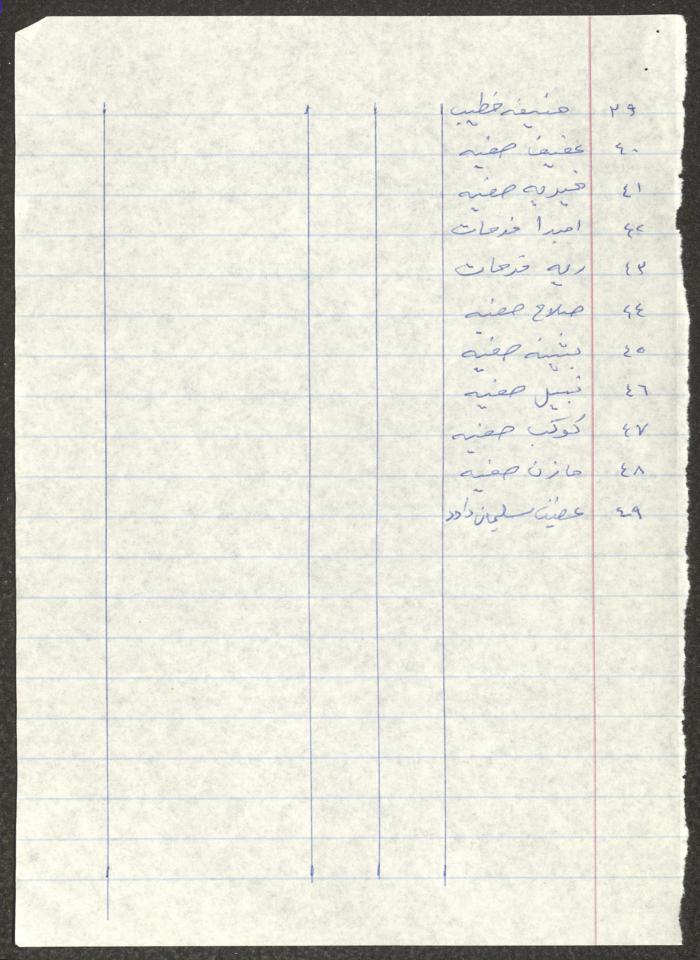 ٣٩ حنيفه خطيب
٤٠ عفيف صفيه
٤١ خيريه صفيه
٤٢ اميرا فرحات
٤٣ ريه فرحات
٤٤ صلاح صفيه
٤٥ بثينه صفيه
٤٦ نبيل صفيه
٤٧ كوكب صفيه
٤٨ مازن صفيه
٤٩ سليمان داود